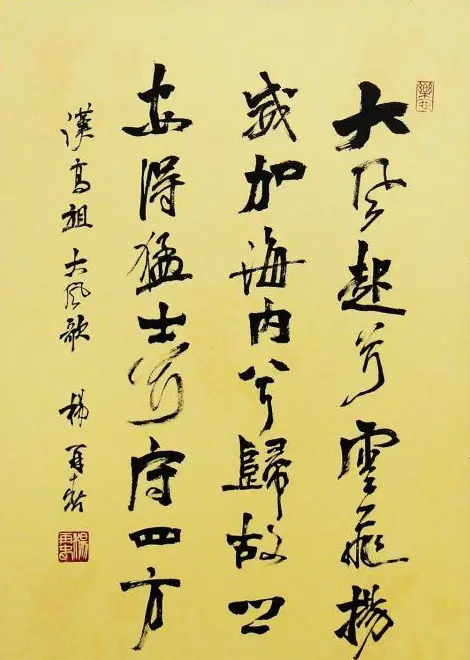 大風起兮雲飛揚
威加海内兮歸故鄉
安得猛士兮守四方
漢高祖大風歌 楊再春